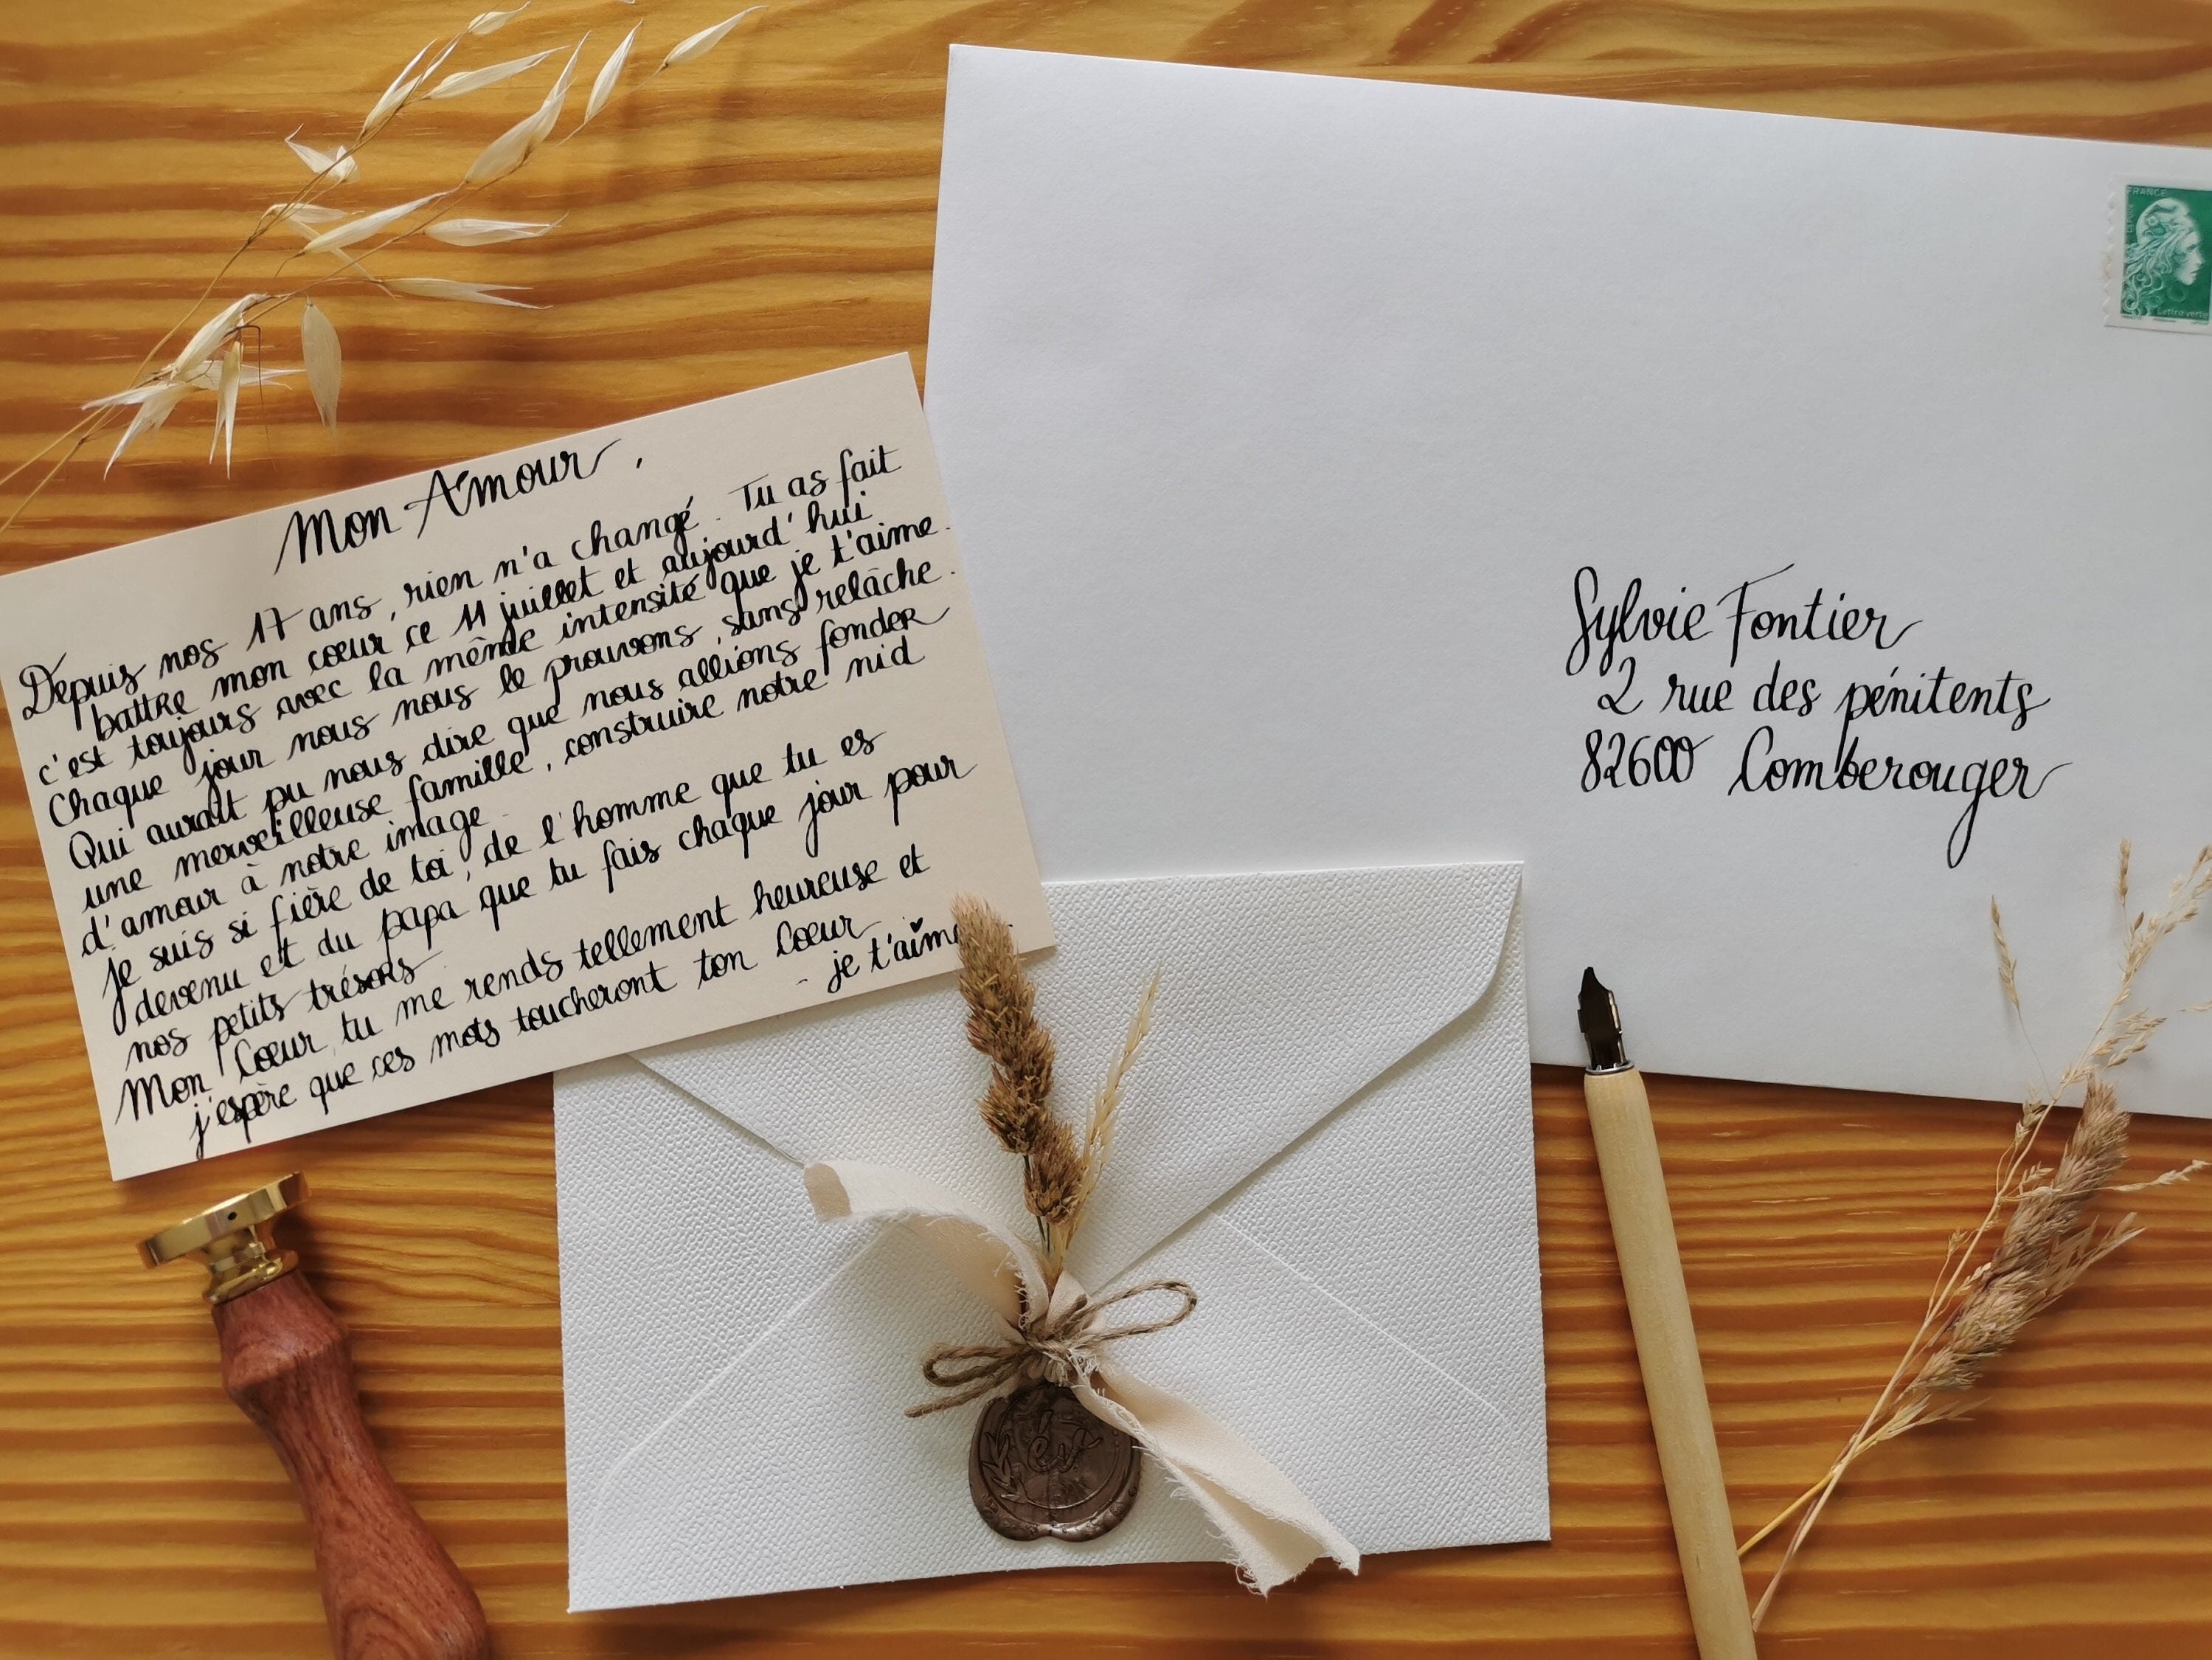 Mon Amour,
Depuis nos 17 ans, rien n'a changé. Tu as fait
battre mon cœur ce 11 juillet et aujourd'hui
c'est toujours avec la même intensité que je t'aime.
Chaque jour nous nous le prouvons, sans relâche.
Qui aurait pu nous dire que nous allions fonder
une merveilleuse famille, construire notre nid
d'amour à notre image.
Je suis si fière de toi, de l'homme que tu es
devenu et du papa que tu fais chaque jour pour
nos petits trésors
Mon Cœur tu me rends tellement heureuse et
j'espère que ces mots toucheront ton Cœur
- je t'aime
FRANCE
Lettre verte
Sylvie Fontier
2 rue des pénitents
82600 Comberouger